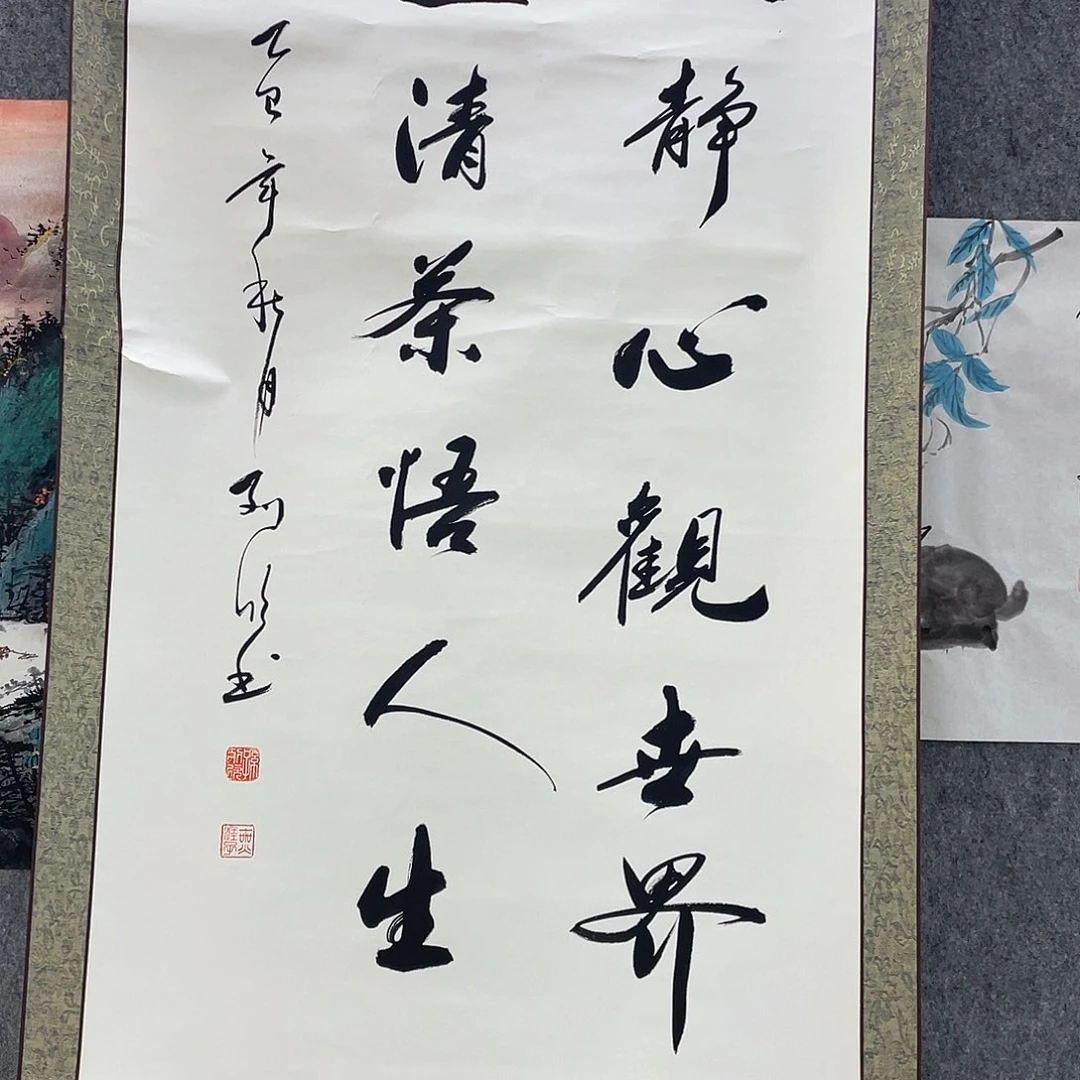 静心觀世界
清茶悟人生
乙巳年秋月